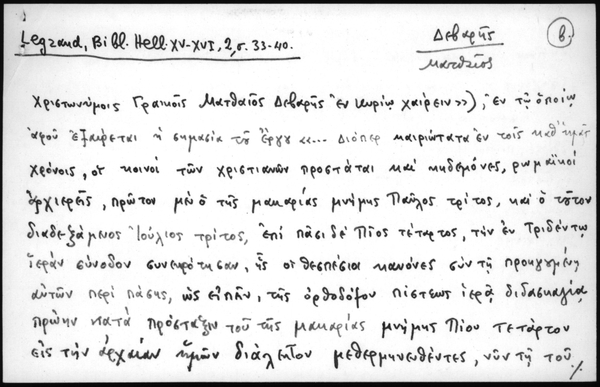 Legrand, Bibl. Hell. XV-XVI, 2, σ. 33-40.
Δεβαρῆς
Ματθαῖος
β.
Χριστωνύμοις Γραικοῖς Ματθαῖος Δεβαρῆς ἐν Κυρίῳ χαίρειν»), ἐν τῷ ὁποίῳ
ἀφοῦ ἐξαίρεται ἡ σημασία τοῦ ἔργου «... Διόπερ καιριώτατα ἐν τοῖς καθ' ἡμᾶς
χρόνοις, οἱ κοινοὶ τῶν χριστιανῶν προστάται καὶ κηδεμόνες, ρωμαϊκοὶ
ἀρχιερεῖς, πρῶτον μὲν ὁ τῆς μακαρίας μνήμης Παῦλος τρίτος, καὶ ὁ τοῦτον
διαδεξάμενος Ἰούλιος τρίτος, ἐπὶ πᾶσι δὲ Πῖος τέταρτος, τὴν ἐν Τριδέντῳ
ἱερὰν σύνοδον συνεκρότησαν, ἧς οἱ θεσπέσιοι κανόνες σὺν τῇ προηγουμένῃ
αὐτῶν περὶ πάσης, ὡς εἰπεῖν, τῆς ὀρθοδόξου πίστεως ἱερᾷ διδασκαλίᾳ,
πρώην κατὰ πρόσταξιν τοῦ τῆς μακαρίας μνήμης Πίου τετάρτου
εἰς τὴν ἀρχαίαν ἡμῶν διάλεκτον μεθερμηνευθέντες, νῦν τῇ τοῦ ./.